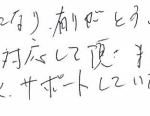 になり、有りがとう
対応して頂き
、サポートしてい